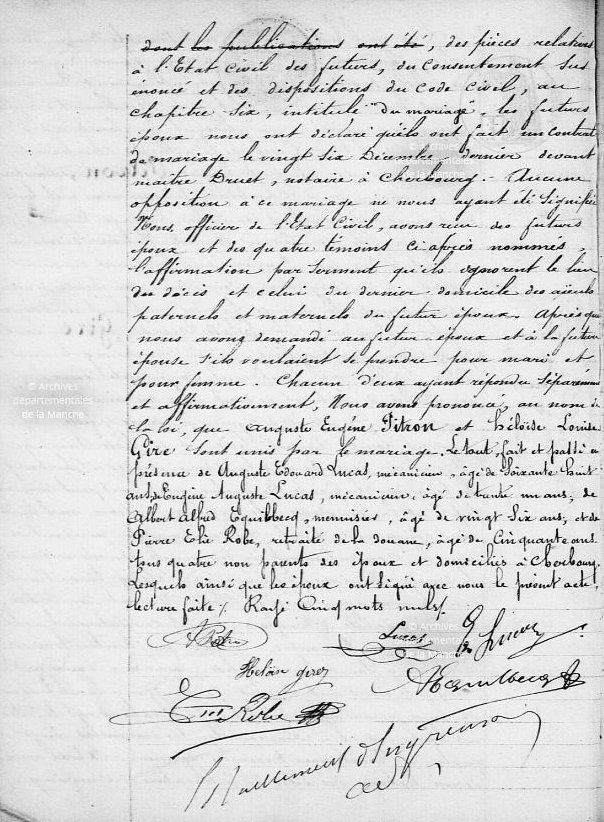 dont les publications ont été, des pièces relatives
à l'Etat civil des futurs, du consentement sus
énoncé et des dispositions du Code Civil, au
chapitre six, intitulé "du mariage". les futurs
époux nous ont déclaré qu'ils ont fait un contrat
de mariage le vingt six Décembre dernier devant
maître Druet, notaire à Cherbourg. - Aucune
opposition à ce mariage ne nous ayant été signifiée
Nous, officier de l'Etat Civil, avons reçu des futurs
époux et des quatre témoins ci après nommés,
l'affirmation par serment qu'ils ignorent le lieu
du décès et celui du dernier domicile des aïeuls
paternels et maternels du futur époux. Après que
nous avons demandé au futur époux et à la future
épouse s'ils voulaient se prendre pour mari et
pour femme. Chacun d'eux ayant répondu séparément
et affirmativement, Nous avons prononcé, au nom de
la loi, que Auguste Eugène Pitron et Héloïse Louise
Gire sont unis par le mariage. Le tout, fait et passé en
présence de Auguste Edouard Lucas, mécanicien, âgé de soixante huit
ans, de Eugène Auguste Lucas, mécanicien, âgé de trente un ans, de
Albert Alfred Equilbecq, menuisier, âgé de vingt six ans, et de
Pierre Elie Robe, retraité de la douane, âgé de cinquante ans
tous quatre non parents des époux et domiciliés à Cherbourg.
Lesquels ainsi que les époux ont signé avec nous le présent acte,
lecture faite /. Rayé cinq mots nuls /.
Lucas E Lucas
Héloïse gire
AEquilbecq
Robe
© Archives
départementales
de la Manche
© Archives
départementales
de la Manche
© Archives
départementales
de la Manche